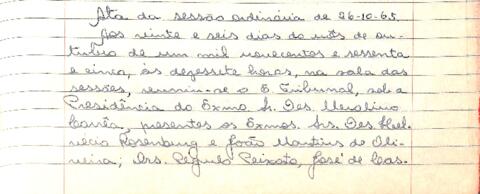 Ata da sessão ordinária de 26-10-65.
Aos vinte e seis dias do mês de ou-
tubro de um mil novecentos e sessenta
e cinco, às dezessete horas, na sala das
sessões, reuniu-se o E. Tribunal, sob a
Presidência do Exmo. Sr. Des. Merolino
Corrêa, presentes os Exmos. Srs. Des. Hel-
vécio Rosenburg e João Martins de Oli-
veira; Drs. Régulo Peixoto, José de Cas-